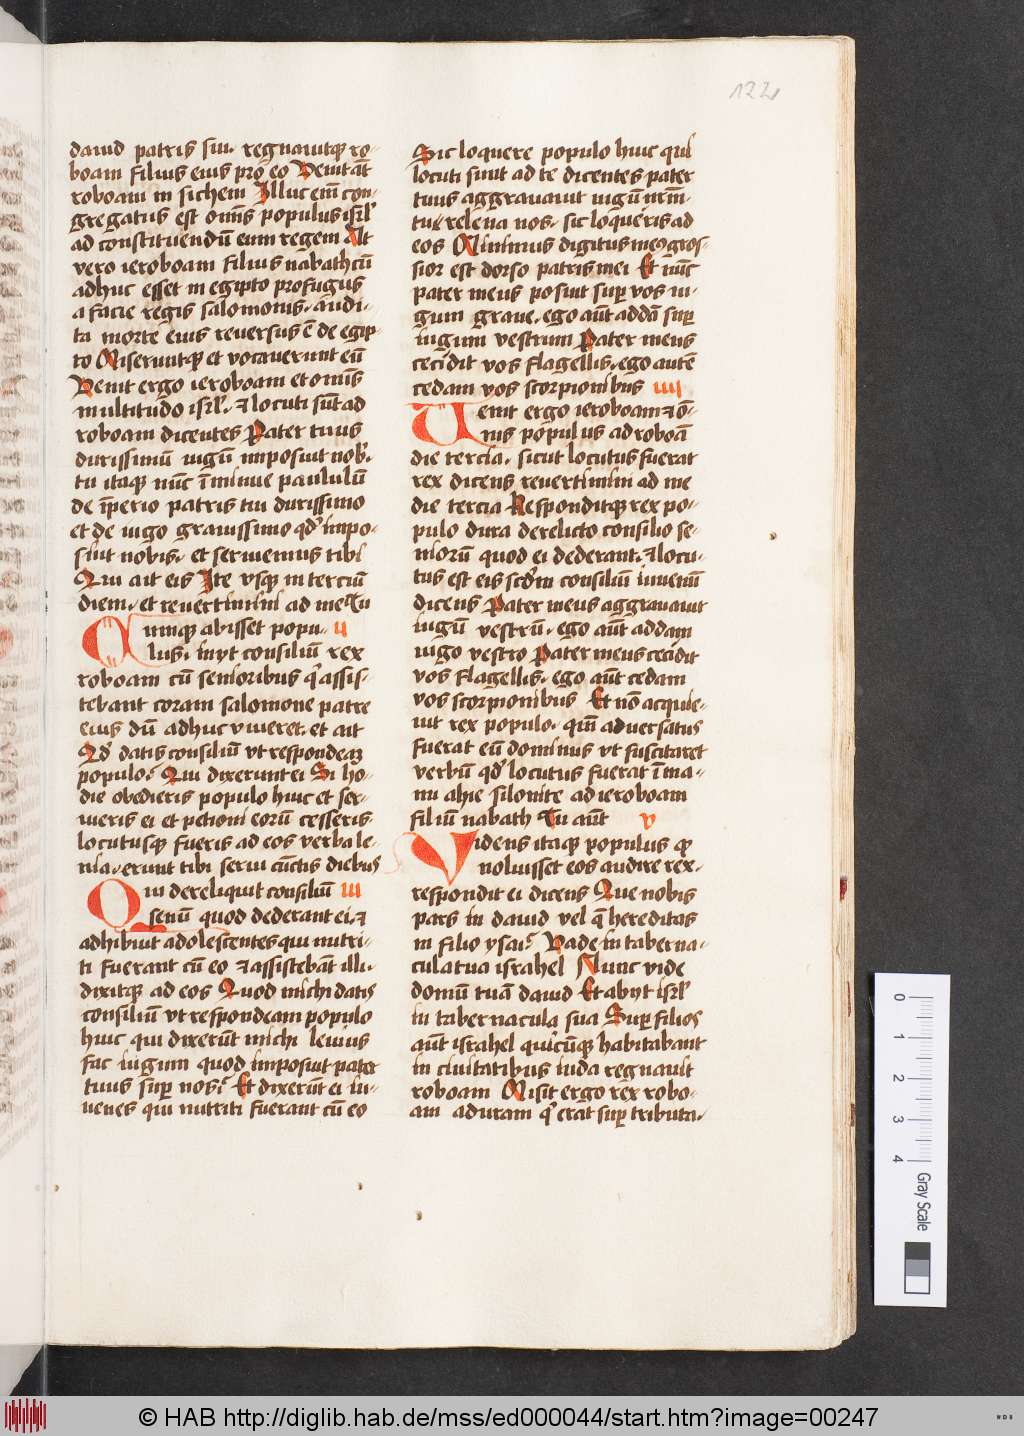 122
dauid patris sui. regnauitqꝫ ro-
boam filius eius pro eo Uenit aūt
roboam in sichem Illuc em̄ con-
gregatus est om̄is populus isrl'
ad constituendū eum regem At
vero ieroboam filius nabath cū
adhuc esset in egipto profugus
a facie regis salomonis. audi-
ta morte eius reuersus ē de egip-
to Miseruntqꝫ et vocauerunt eū
Uenit ergo ieroboam et om̄is
multitudo isrl'. ⁊ locuti sūt ad
roboam dicentes Pater tuus
durissimū iugū imposuit nob'.
tu itaqꝫ nūc īminue paululū
de īperio patris tui durissimo
et de iugo grauissimo qd' impo-
suit nobis. et seruiemus tibi
Qui ait eis Ite vsqꝫ in terciū
diem. et reuertimini ad me Cu
Cumqꝫ abisset popu- ii
lus. inijt consiliū rex
roboam cū senioribus q' assis-
tebant coram salomone patre
eius dū adhuc viueret. et ait
Qd' datis consiliū vt respondeaꝫ
populo. Qui dixerunt ei Si ho-
die obedieris populo huic et ser-
uieris ei et peticni eorū cesseris
locutusqꝫ fueris ad eos verba le-
nia. erunt tibi serui cūctis diebus
Qui dereliquit consiliū iii
senum quod dederant ei. ⁊
adhibuit adolescentes qui nutri-
ti fuerant cū eo ⁊ assistebāt illi.
dixitqꝫ ad eos Quod michi datis
consiliū vt respondeam populo
huic qui dixerūt michi leuius
fac iugum quod imposuit pater
tuus suꝑ nos. Et dixerūt ei iu-
uenes qui nutriti fuerant cū eo
Sic loquere populo huic qui
locuti sunt ad te dicentes pater
tuus aggrauauit iugū nr̄m
tu releua nos. sic loqueris ad
eos Minimus digitus meꝰ gros-
sior est dorso patris mei Et nūc
pater meus posuit suꝑ vos iu-
gum graue. ego aūt addā suꝑ
iugum vestrum Pater meus
cecidit vos flagellis. ego autē
cedam vos scorpionibus iiii
Uenit ergo ieroboam ⁊ ō-
nis populus ad roboā
die tercia. sicut locutus fuerat
rex dicens reuertimini ad me
die tercia Responditqꝫ rex po-
pulo dura derelicto consilio se-
niorū quod ei dederant. ⁊ locu-
tus est eis scd'm consiliū iuuenū
dicens Pater meus aggrauauit
iugū vestrū. ego aūt addam
iugo vestro Pater meus cecidit
vos flagellis. ego aūt cedam
vos scorpionibus Et nō acquie-
uit rex populo. qm̄ aduersatus
fuerat eū dominus vt suscitaret
verbū qd' locutus fuerat ī ma-
nu ahie silonite ad ieroboam
filiū nabath Cu aūt v
Videns itaqꝫ populus ꝙ
noluisset eos audire rex.
respondit ei dicens Que nobis
pars in dauid vel q̄ hereditas
in filio ysai. Uade in taberna-
cula tua israhel Nunc vide
domū tuā dauid Et abijt isrl'
in tabernacula sua Suꝑ filios
aūt israhel quicūqꝫ habitabant
in ciuitatibus iuda regnauit
roboam Misit ergo rex robo-
am aduram q' erat suꝑ tributa.
0 1 2 3 4 Gray Scale
© HAB http://diglib.hab.de/mss/ed000044/start.htm?image=00247